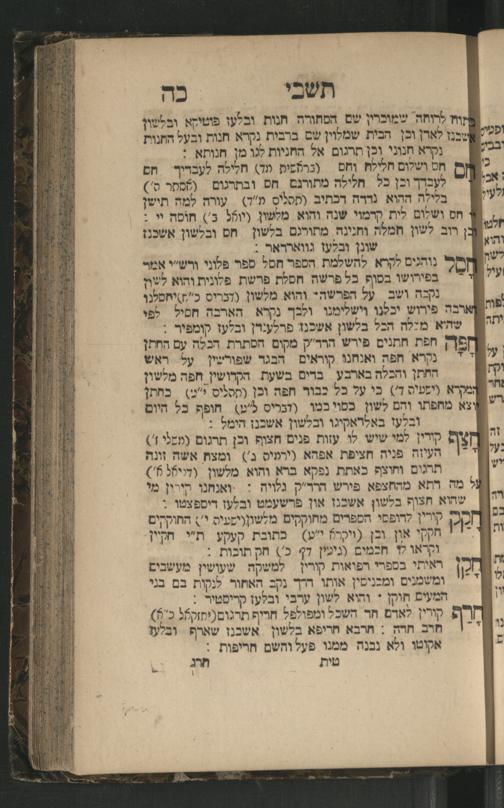 תשבי
כה
פתוח לרוחה שמוכרין שם הסחורה חנות ובלעז פוטיקא ובלשון
אשכנז לאדן וכן הבית שמלוין שם ברבית נקרא חנות ובעל החנות
נקרא חנוני וכן תרגום אל החניות לגו מן חנותא :
חס חס ושלום חלילה וחס (בראשית מד) חלילה לעבדיך חס
לעבדך וכן כל חלילה מתורגם חס ובתרגום (אסתר ס')
בלילה ההוא נדדה דכתיב (תהלים מ"ד) עורה למה תישן
יי חס ושלום לית קדמוי שנה והוא מלשון (יואל ב') חוסה יי :
וכן רוב לשון חמלה וחנינה מתורגם בלשון חס ובלשון אשכנז
שונן ובלעז גווארדאר :
חסל נוהגים לקרא להשלמת הספר חסל ספר פלוני ורש"י אמר
בפירושו בסוף כל פרשה חסלת פרשת פלונית והוא לשון
נקבה ושב על הפרשה והוא מלשון (דברים כ"ח) יחסלנו
הארבה פירוש יכלנו וישלימנו ולכך נקרא הארבה חסיל לפי
שהוא מכלה הכל בלשון אשכנז ובלעז קומפיר :
חפה חפת חתנים פירש הרד"ק מקום הסתרת הכלה עם החתן
נקרא חפה ואנחנו קוראים הבגד שפורשין על ראש
החתן והכלה בארבע בדים בשעת הקדושין חפה מלשון
המקרא (ישעיה ד') כי על כל כבוד חפה וכן (תהלים י"ט) כחתן
יוצא מחפתו והם לשון כסוי כמו (דברים ל"ג) חופף כל היום
ובלעז באלדאקינו ובלשון אשכנז הימל :
חצף קורין למי שיש לו עזות פנים חצוף וכן תרגום (משלי ז')
העיזה פניה חציפת אפהא (ירמיה ג') ומצח אשה זונה
תרגום וחוצף כאתת נפקא ברא והוא מלשון (דניאל ב')
על מה דתא מהחצפא פירש הרד"ק גלויה : ואנחנו קורין מי
שהוא חצוף בלשון אשכנז און פרשעמט ובלעז דיספצטו :
חקק קורין לדופסי הספרים מחוקקים מלשון (ישעיה י') החוקקים
חקקי און וכן (ויקרא י"ט) כתובת קעקע ת"י חקיין
וקראו לו חכמים (גיטין דף כ') חק תוכות :
חקן ראיתי בספרי רפואות קורין למשקה שעושין מעשבים
ומשמנים ומכניסין אותו דרך נקב האחור לנקות בם בני
המעים חוקן והוא לשון ערבי ובלעז קריסטיר :
חרף קורין לאדם חד השכל ומפולפל חריף תרגום (יחזקאל כ"א)
חרב חדה : חרבא חריפא בלשון אשכנז שארף ובלעז
אקוטו ולא נבנה ממנו פעל והשם חריפות :
טית
חרג